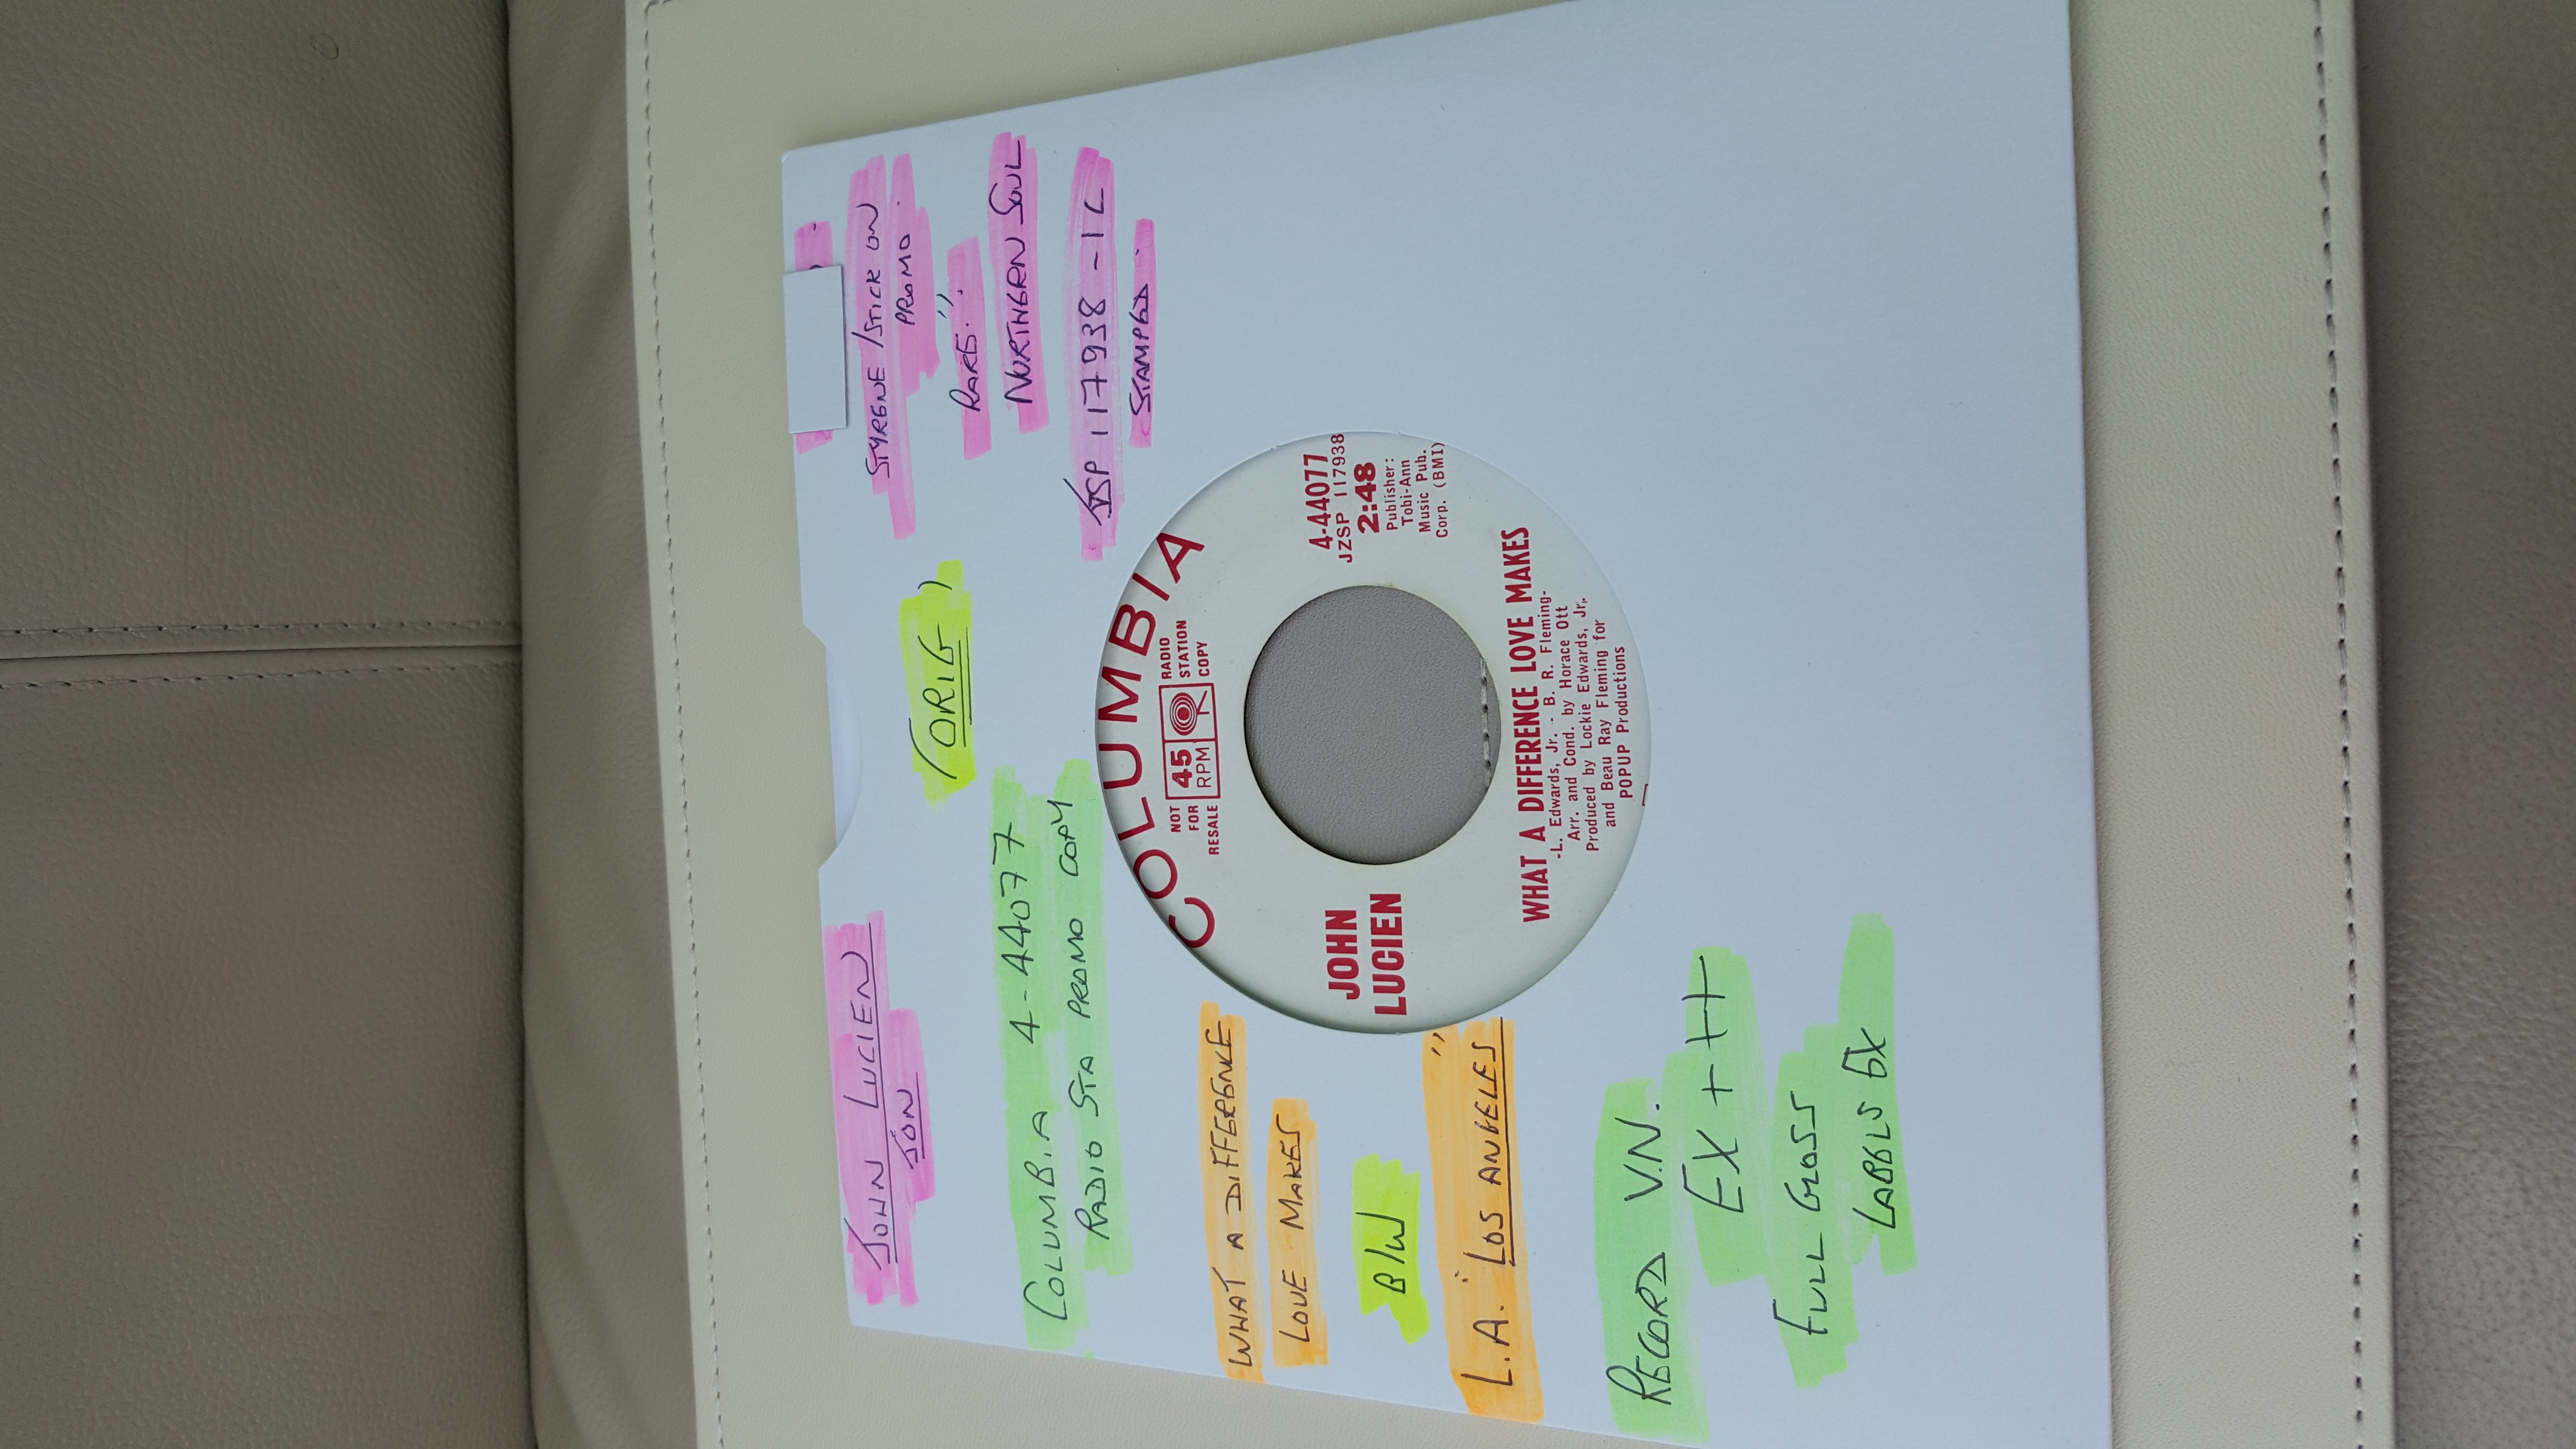 JOHN LUCIEN
JON
(ORIG)
COLUMBIA 4-44077
RADIO STA PROMO COPY
WHAT A DIFFERENCE
LOVE MAKES
B/W
L.A. "LOS ANGELES"
RECORD V.N.
EX + ++
FULL GLOSS
LABELS EX
STYRENE / STICK ON
PROMO.
RARE.".
NORTHERN SOUL
JSP 117938-1C
STAMPED.
COLUMBIA
NOT
FOR
RESALE
45
RPM
RADIO
STATION
COPY
JOHN
LUCIEN
4-44077
JZSP 117938
2:48
Publisher:
Tobi-Ann
Music Pub.
Corp. (BMI)
WHAT A DIFFERENCE LOVE MAKES
-L. Edwards, Jr. - B. R. Fleming-
Arr. and Cond. by Horace Ott
Produced by Lockie Edwards, Jr.
and Beau Ray Fleming for
POPUP Productions